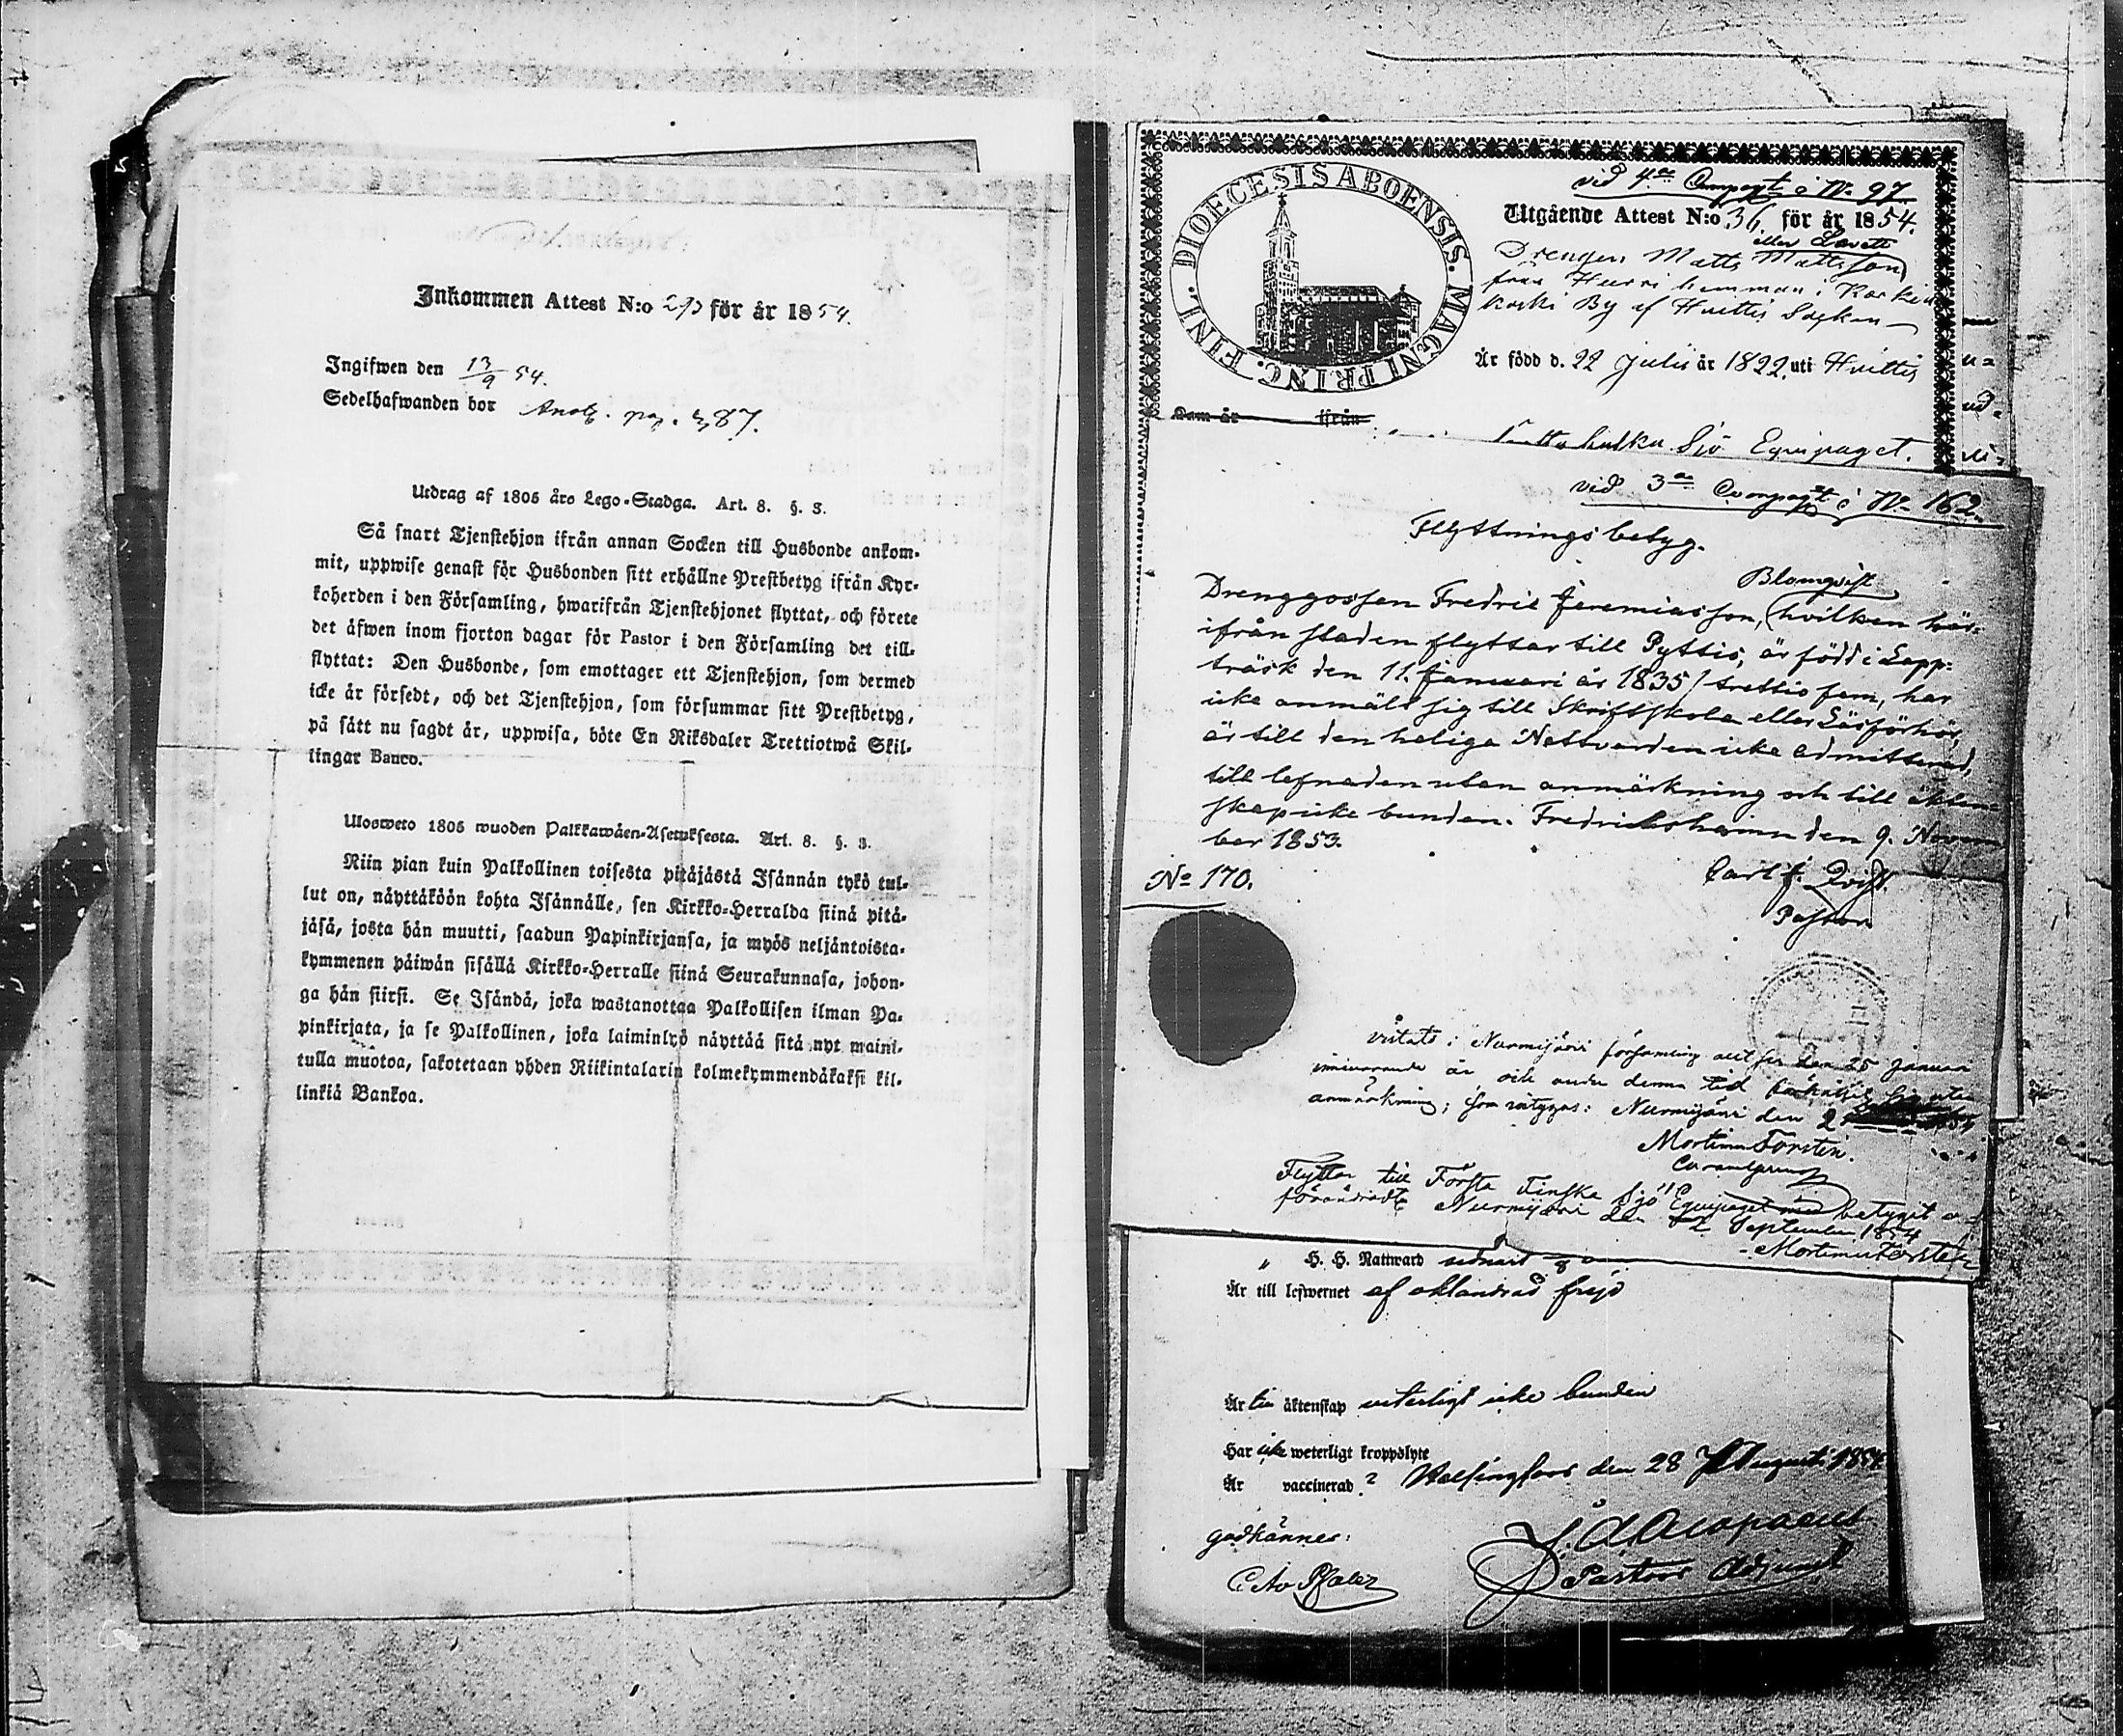 Inkommen Attest N:o för år 1854.
Ingifwen den 13/9 54.
Sedelhafwanden bor pag. 387.
Utdrag af 1805 års Lego-Stadga. Art. 8. §. 3.
Så snart Tjenstehjon ifrån annan Socken till Husbonde ankom-
mit, uppwise genast för Husbonden sitt erhållne Prestbetyg ifrån Kyr-
koherden i den Församling, hwarifrån Tjenstehjonet flyttat, och förete
det äfwen inom fjorton dagar för Pastor i den Församling det till-
flyttat: Den Husbonde, som emottager ett Tjenstehjon, som dermed
icke är försedt, och det Tjenstehjon, som försummar sitt Prestbetyg,
på sätt nu sagdt är, uppwisa, böte En Riksdaler Trettiotwå Skil-
lingar Banco.
Uloswето 1805 wuoden Palkkawäen-Asetuksesta. Art. 8. §. 3.
Niin pian kuin Palkollinen toisesta pitäjästä Isännän tykö tul-
lut on, näyttäköön kohta Isännälle, sen Kirkko-Herralda siinä pitä-
jäsä, josta hän muutti, saadun Papinkirjansa, ja myös neljäntoista-
kymmenen päiwän sisällä Kirkko-Herralle siinä Seurakunnasa, johon-
ga hän siirsi. Se Isändä, joka wastanottaa Palkollisen ilman Pa-
pinkirjata, ja se Palkollinen, joka laiminlyö näyttää sitä nyt maini-
tulla muotoa, sakotetaan yhden Riikintalarin kolmekymmendäkaksi kil-
linkiä Bankoa.
DIOECESIS ABOENSIS. MAGNI PRINC. FINL.
vid 4de Compagt å No 97.
Utgående Attest N:o 36. för år 1854.
eller Lavett
Drengen Matts Mattsson
från Hurri hemman i
koski By af Huittis Socken
Är född d. 22 Julii år 1822 uti Huittis
Kom år ifrån
Sjö Equipaget.
vid 3de Compagt å No 162.
Flyttningsbetyg.
Blomqvist
Drenggossen Fredric Jeremiasson, hvilken här-
ifrån staden flyttar till Pyttis, är född i Lapp-
träsk den 11. Januari år 1835/trettio fem, har
icke anmält sig till Skriftskola eller Läsförhör,
är till den heliga Nattvarden icke admitterad,
till lefnaden utan anmärkning och till äkten-
skap icke bunden. Fredrichshamn den 9. Novem
ber 1853.
No 170.
Carl J. Qvist
Pastor
vistats i Nurmijärvi församling allt sen den 25 Januari
innevarande år och under denna tid
anmärkning; som intygas: Nurmijärvi den
Mortimer Forstén.
Flyttar till Första Finska Sjö Equipaget med betyget o-
förändradt Nurmijärvi den September 1854
Mortimer Forstén
" H. H. Nattward
Är till lefwernet af oklandrad frejd
Är till äktenskap veterligt icke bunden
Har icke weterligt kroppslyte
Är vaccinerad? Helsingfors den 28 Augusti 1854
godkännes:
Pastors Adjunct